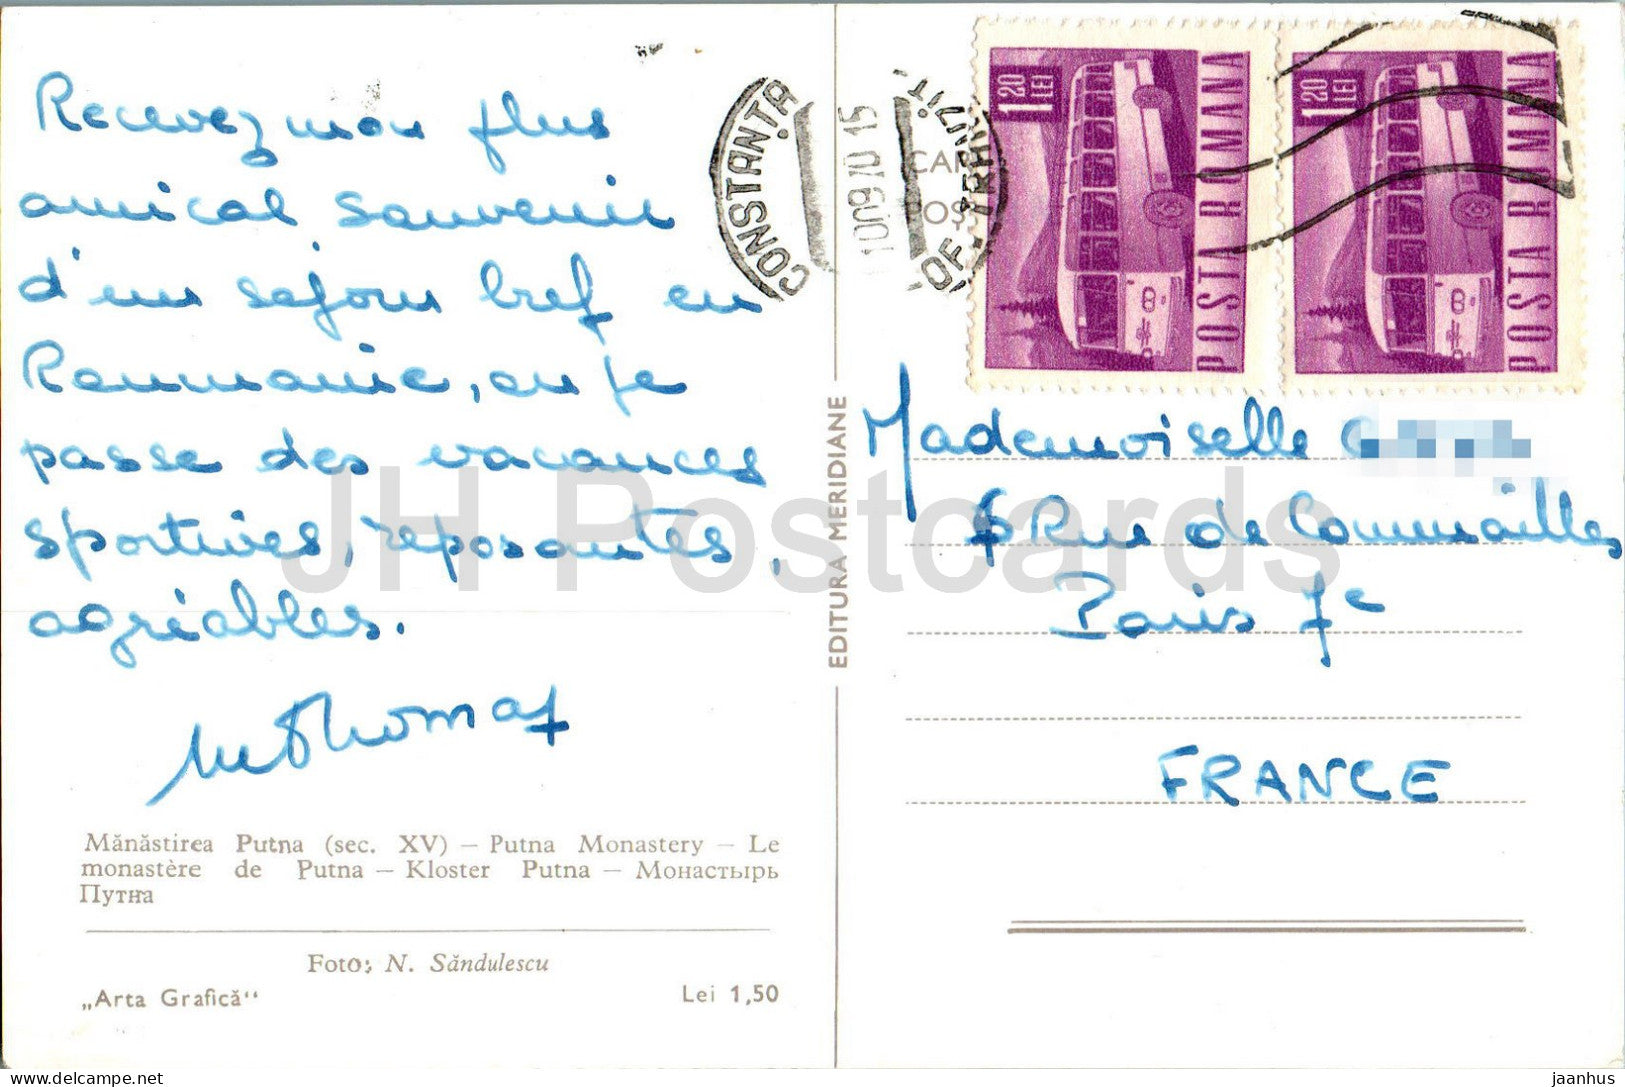 Recevez mon plus
amical souvenir
d'un séjour bref en
Roumanie, ou je
passe des vacances
sportives, reposantes,
agréables.
Mănăstirea Putna (sec. XV) — Putna Monastery — Le
monastère de Putna — Kloster Putna — Монастырь
Путна
Foto: N. Săndulescu
„Arta Grafică“
Lei 1,50
EDITURA MERIDIANE
CONSTANȚA
OF. TRANZIT
1,20 LEI
POSTA ROMANA
1,20 LEI
POSTA ROMANA
Mademoiselle
6 Rue de Commailles
Paris 7e
FRANCE
JH Postcards
delcampe.net
jaanhus